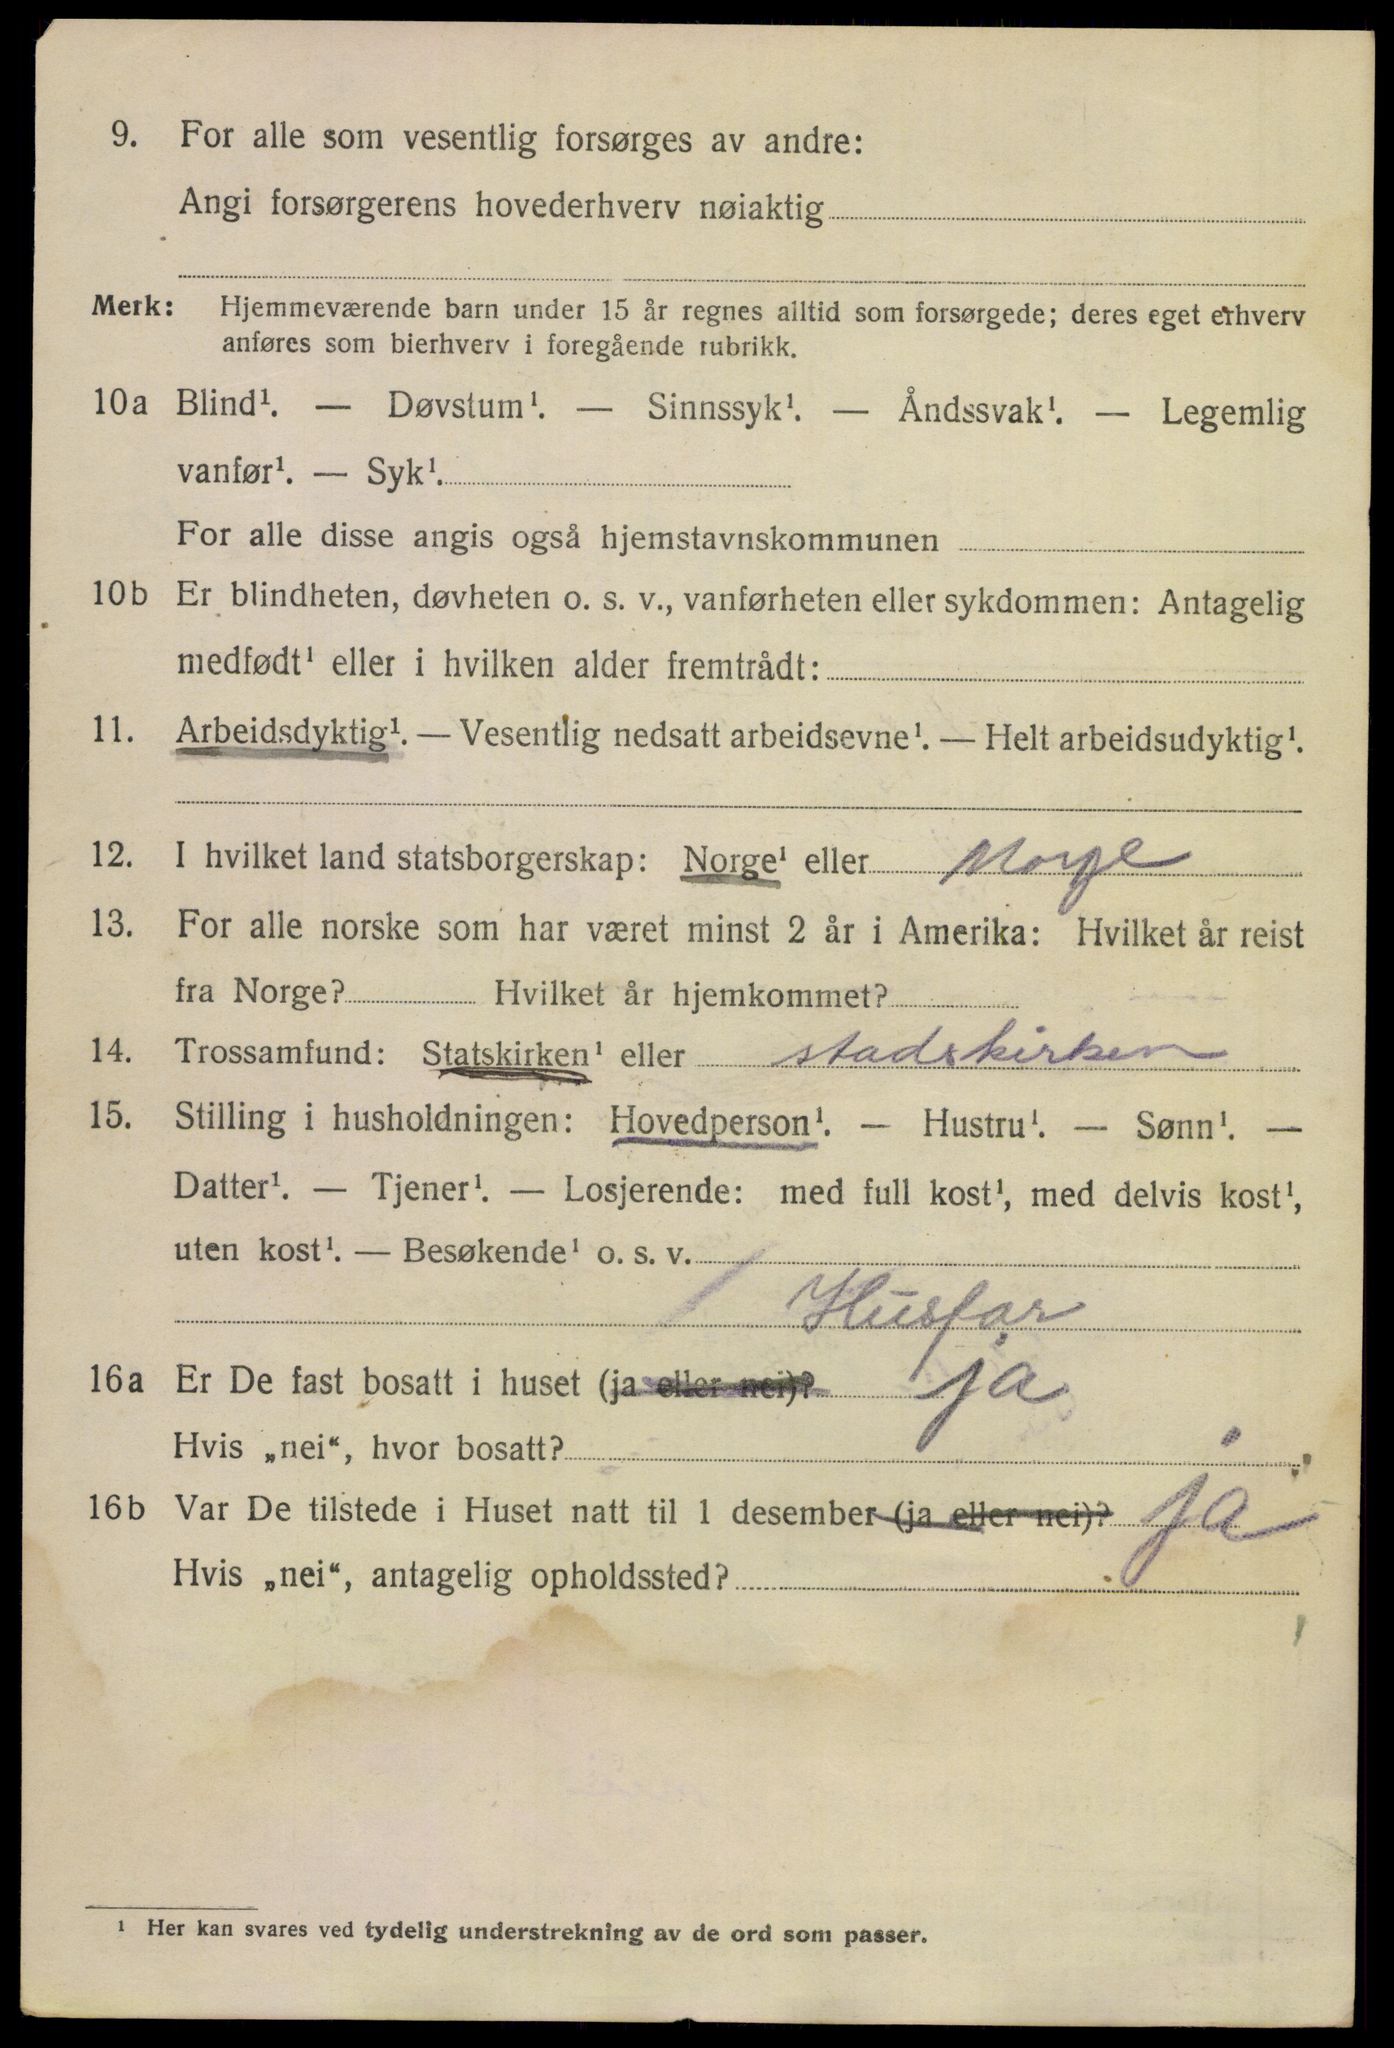 9. For alle som vesentlig forsørges av andre:
Angi forsørgerens hovederhverv nøiaktig
Merk: Hjemmeværende barn under 15 år regnes alltid som forsørgede; deres eget erhverv
anføres som bierhverv i foregående rubrikk.
10a Blind¹. — Døvstum¹. — Sinnssyk¹. — Åndssvak¹. — Legemlig
vanfør¹. — Syk¹.
For alle disse angis også hjemstavnskommunen
10b Er blindheten, døvheten o. s. v., vanførheten eller sykdommen: Antagelig
medfødt¹ eller i hvilken alder fremtrådt:
11. Arbeidsdyktig¹. — Vesentlig nedsatt arbeidsevne¹. — Helt arbeidsudyktig¹.
12. I hvilket land statsborgerskap: Norge¹ eller Norge
13. For alle norske som har været minst 2 år i Amerika: Hvilket år reist
fra Norge? Hvilket år hjemkommet?
14. Trossamfund: Statskirken¹ eller stadskirken
15. Stilling i husholdningen: Hovedperson¹. — Hustru¹. — Sønn¹. —
Datter¹. — Tjener¹. — Losjerende: med full kost¹, med delvis kost¹,
uten kost¹. — Besøkende¹ o. s. v.
Husfar
16a Er De fast bosatt i huset (ja eller nei)? ja
Hvis „nei“, hvor bosatt?
16b Var De tilstede i Huset natt til 1 desember (ja eller nei)? ja
Hvis „nei“, antagelig opholdssted?
¹ Her kan svares ved tydelig understrekning av de ord som passer.